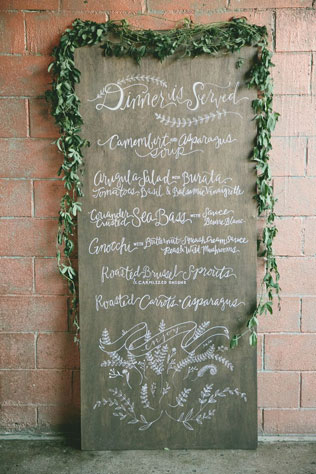 Dinner is Served
Camembert and Asparagus
Soup
Arugula Salad with Burata
Tomatoes Basil & Balsamic Vinaigrette
Coriander Crusted Sea Bass with Sauce Beurre Blanc
Gnocchi with Butternut Squash Cream Sauce
Roasted Wild Mushrooms
Roasted Brussel Sprouts
& Carmelized Onions
Roasted Carrots + Asparagus
enjoy